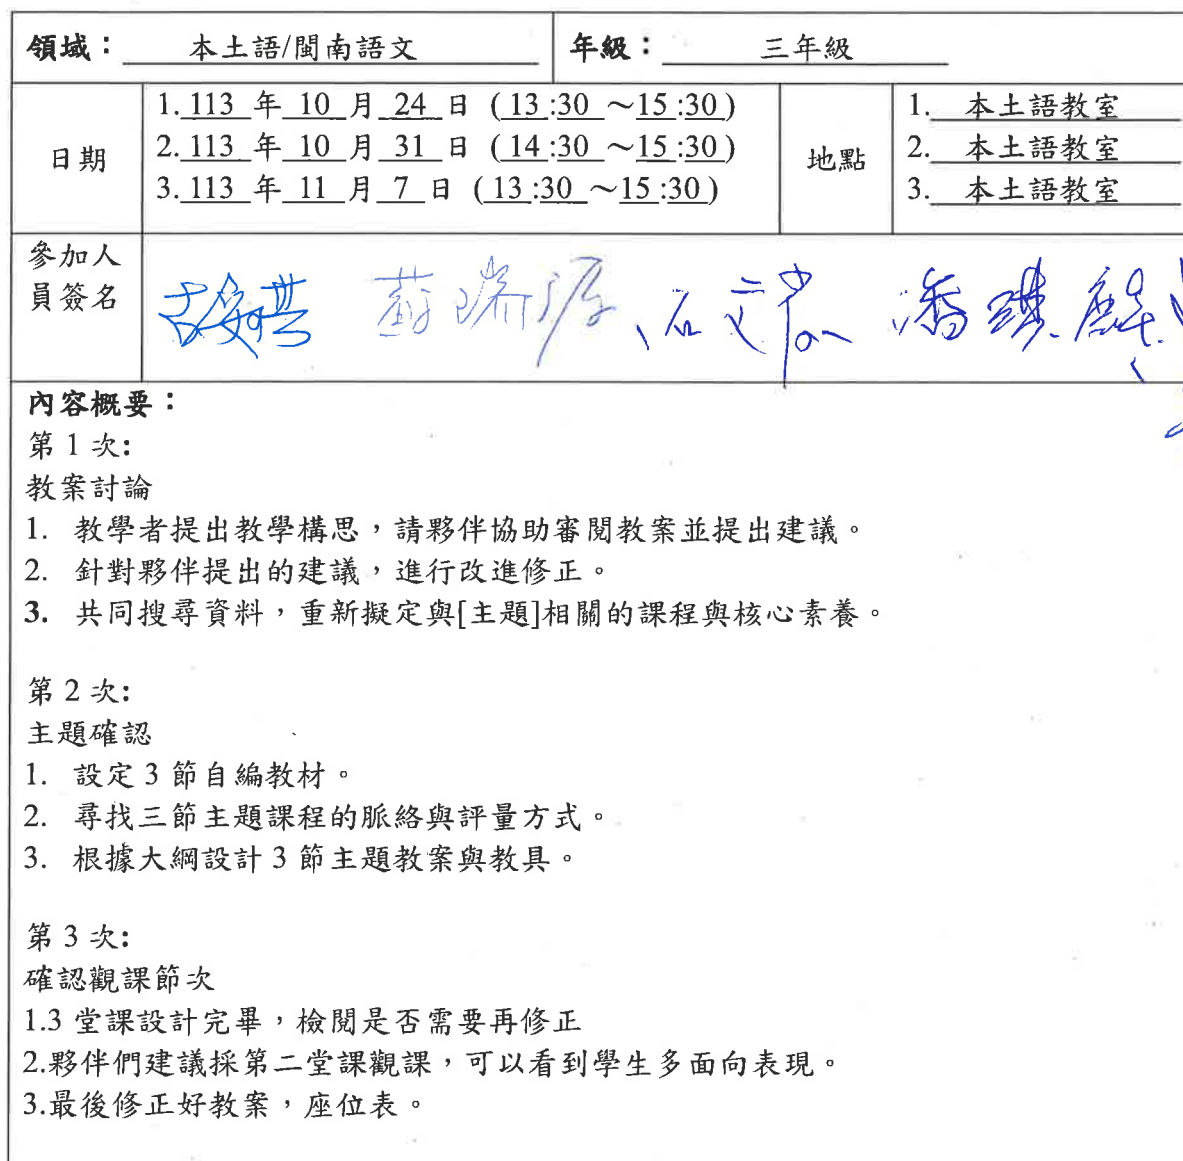 領域： 本土語/閩南語文 年級： 三年級
日期
1. 113 年 10 月 24 日 (13:30 ～15:30)
2. 113 年 10 月 31 日 (14:30 ～15:30)
3. 113 年 11 月 7 日 (13:30 ～15:30)
地點
1. 本土語教室
2. 本土語教室
3. 本土語教室
參加人
員簽名
內容概要：
第 1 次:
教案討論
1. 教學者提出教學構思，請夥伴協助審閱教案並提出建議。
2. 針對夥伴提出的建議，進行改進修正。
3. 共同搜尋資料，重新擬定與[主題]相關的課程與核心素養。
第 2 次:
主題確認
1. 設定 3 節自編教材。
2. 尋找三節主題課程的脈絡與評量方式。
3. 根據大綱設計 3 節主題教案與教具。
第 3 次:
確認觀課節次
1.3 堂課設計完畢，檢閱是否需要再修正
2.夥伴們建議採第二堂課觀課，可以看到學生多面向表現。
3.最後修正好教案，座位表。